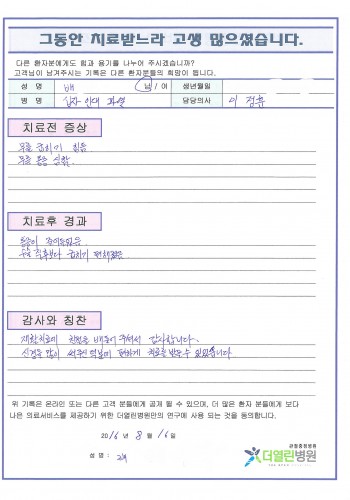 그동안 치료받느라 고생 많으셨습니다.
다른 환자분에게도 힘과 용기를 나누어 주시겠습니까?
고객님이 남겨주시는 기록은 다른 환자분들의 희망이 됩니다.
성 명 배 남 / 여 생년월일
병 명 십자 인대 파열 담당의사 이
치료전 증상
무릎 굽히기 힘듦
무릎 통증 심함
치료후 경과
통증이 줄어들었음.
수술 직후보다 굽히기 편해졌음.
감사와 칭찬
재활치료에 친절을 베풀어 주셔서 감사합니다.
신경을 많이 써주신 덕분에 편하게 치료를 받을 수 있었습니다
위 기록은 온라인 또는 다른 고객 분들에게 공개 될 수 있으며, 더 많은 환자 분들에게 보다
나은 의료서비스를 제공하기 위한 더열린병원만의 연구에 사용 되는 것을 동의합니다.
2016 년 8 월 16 일
성 명 :
관절중점병원
더열린병원